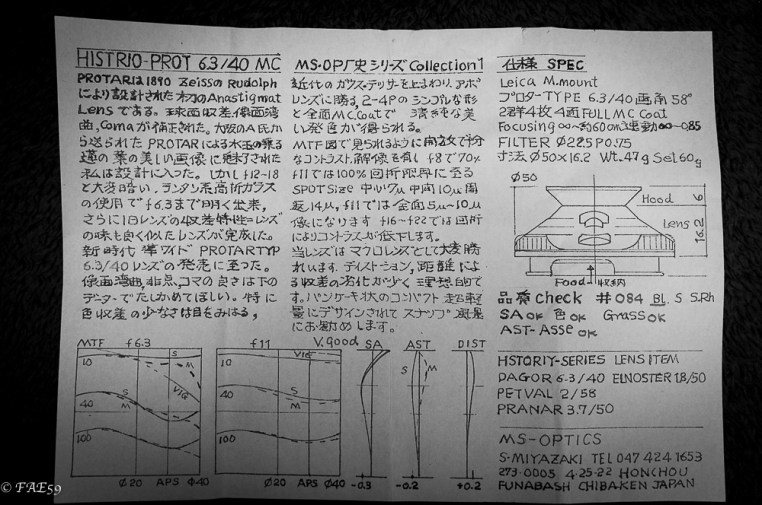 HISTRIO-PROT 6.3/40 MC
PROTARは1890 ZeissのRudolph
により設計された初のAnastigmat
Lensである。球面収差、像面湾
曲、Comaが補正された。大阪のA氏か
ら送られたPROTARによる水玉の乗る
蓮の葉の美しい画像に魅了された
私は設計に入った。しかしf12-18
と大変暗い、ランタン系高折ガラス
の使用でf6.3まで明く出来,
さらに旧レンズの収差特性=レンズ
の味も良く似たレンズが完成した。
新時代 準ワイド PROTARTYP
6.3/40レンズの発売に至った。
像面湾曲,非点、コマの良さは下の
データーでたしかめてほしい。特に
色収差の少なさは目をみはる,
MS-OPT史シリーズ Collection 1
近代のガウス・テッサーを上まわり、アポ
レンズに勝る, 2-4Pのシンプルな形
と全面M.C.Coatで
い発色が得られる。
MTF図で見られるように開放で十分
なコントラスト、解像を有しf8で70%
f11では100%回折限界に至る
SPOT Size 中心7μ 中間10μ 周
辺14μ, f11では全面5μ~10μ
像になります f16~f22では回折
によりコントラストが低下します。
当レンズはマクロレンズとして大変勝
れています。ディストーション,距離によ
る収差の劣化が少く 理想的で
す。パンケーキ状のコンパクト 超軽
量にデザインされて スナップ 風景
にお勧めします。
V.good
仕様 SPEC
Leica M.mount
プロターTYPE 6.3/40 画角58°
2群4枚 4面FULL MC Coat
Focusing ∞~約60cm 連動∞~0.85
FILTER Ø22.5 P0.75
寸法 Ø50×16.2 Wt.47g Set60g
Ø50
Hood 6
Lens 16.2
Food 収納
品質Check #084 BL. S S.Rh
SA OK 色 OK Grass OK
AST-Asse OK
HSTORIY-SERIES LENS ITEM
DAGOR 6.3/40 ELNOSTER 1.8/50
PETVAL 2/58
PRANAR 3.7/50
MS-OPTICS
S.MIYAZAKI TEL 047 424 1653
273-0005 4-25-22 HONCHOU
FUNABASH CHIBAKEN JAPAN
MTF f6.3
10
S
M
VIG
40
S
M
100
Ø20 APS Ø40
f11
VIG
10
S
M
40
S
M
100
Ø20 APS Ø40
SA
-0.3
AST
S
M
-0.2
DIST
+0.2
© FAE59